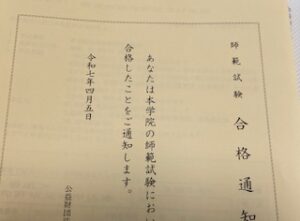 師範試験 合格通知
あなたは本学院の師範試験におい
合格したことをご通知します。
令和七年四月五日
公益財団法